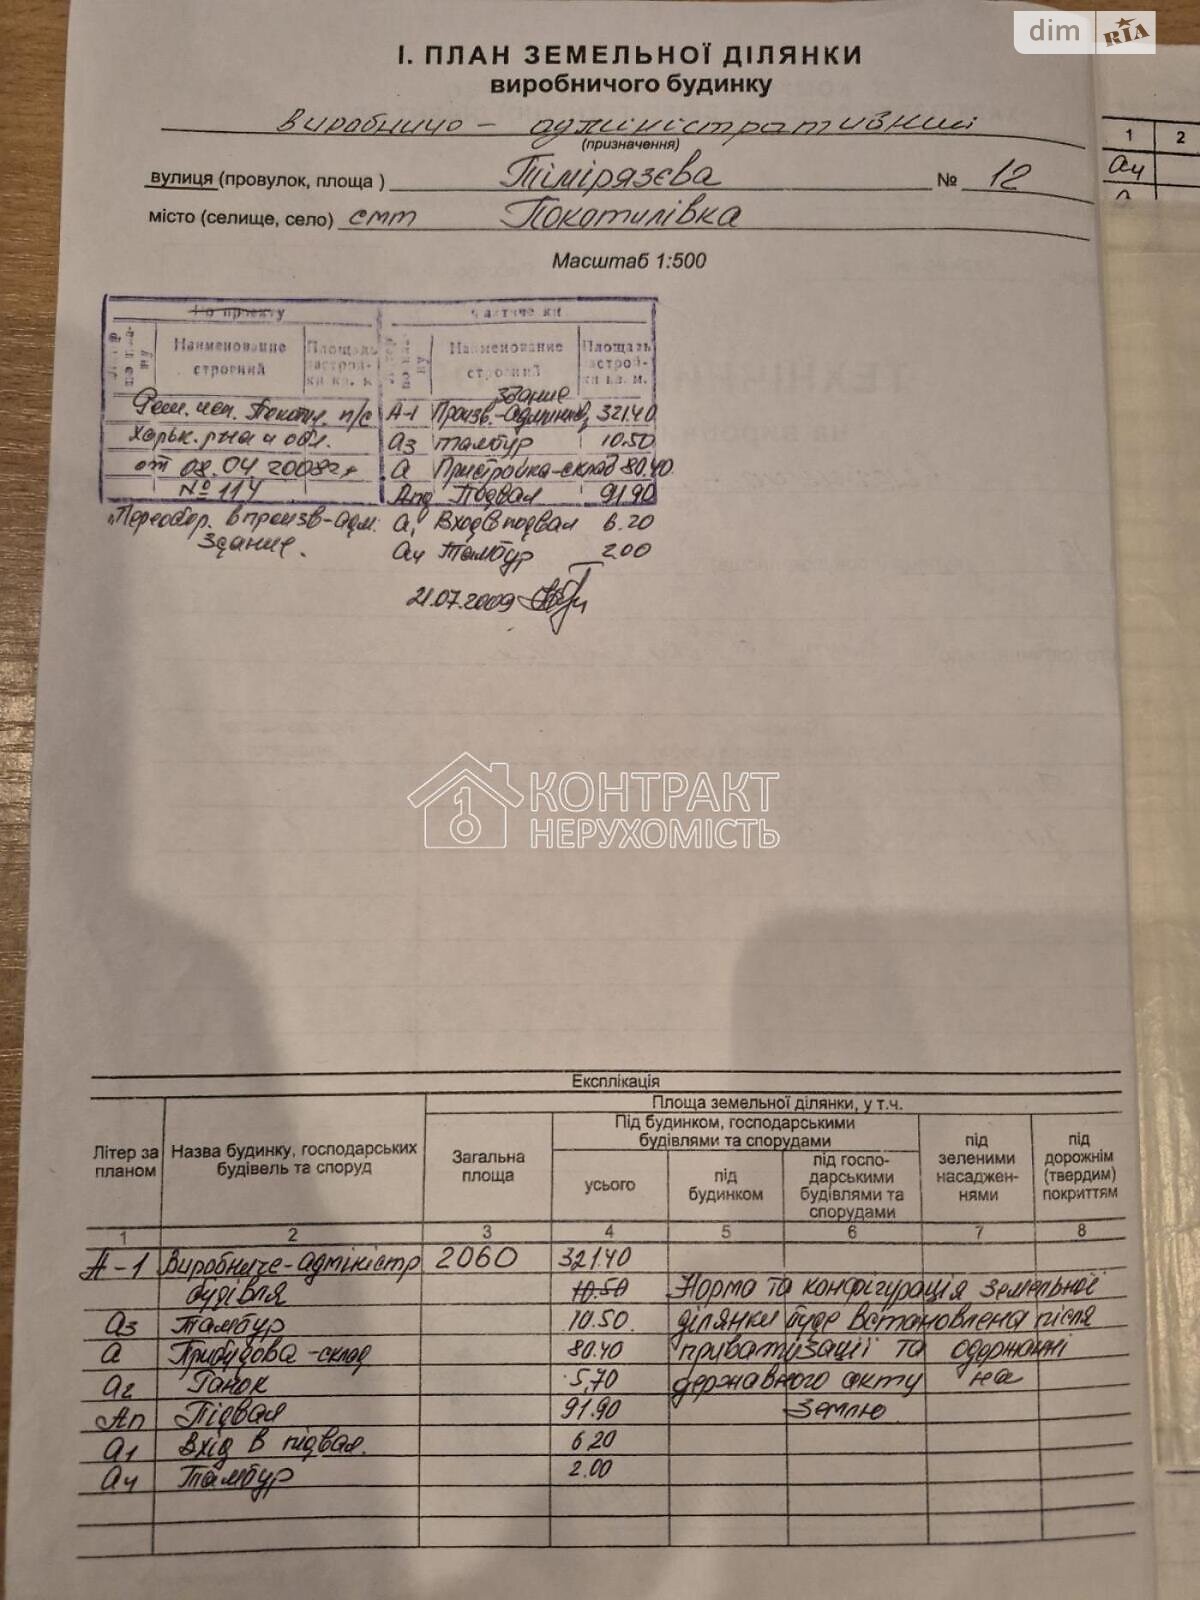 dim RIA
І. ПЛАН ЗЕМЕЛЬНОЇ ДІЛЯНКИ
виробничого будинку
виробничо - адміністративний
(призначення)
вулиця (провулок, площа) Тімірязєва № 12
місто (селище, село) смт Покотилівка
Масштаб 1:500
1 2
а4
По проекту
Наименование строений Площадь застройки кв. м.
Наименование строений Площадь застройки кв. м.
здание
Реш. исп. Покотил. п/с А-1 Произв.-админив, 321.40
Харьк. р-на и обл. а3 тамбур 10.50
от 08.04 2008г. а Пристройка-склад 80.40
№ 114 Апд Подвал 91.90
"Переобор. в произв-адм. а1 Вход в подвал 6.20
здание. а4 Тамбур 2.00
21.07.2009
КОНТРАКТ
НЕРУХОМІСТЬ
Експлікація
Літер за планом
Назва будинку, господарських будівель та споруд
Площа земельної ділянки, у т.ч.
Загальна площа
Під будинком, господарськими будівлями та спорудами
усього
під будинком
під господарськими будівлями та спорудами
під зеленими насадженнями
під дорожнім (твердим) покриттям
1 2 3 4 5 6 7 8
А-1 Виробниче-адміністр 2060 321.40
будівля 10.50 Норма та конфігурація земельної
а3 Тамбур 10.50 ділянки буде встановлена після
а Прибудова-склад 80.40 приватизації та одержанні
а2 Ганок 5,70 державного акту на
Ап Підвал 91.90 землю
а1 Вхід в підвал. 6.20
а4 Тамбур 2.00